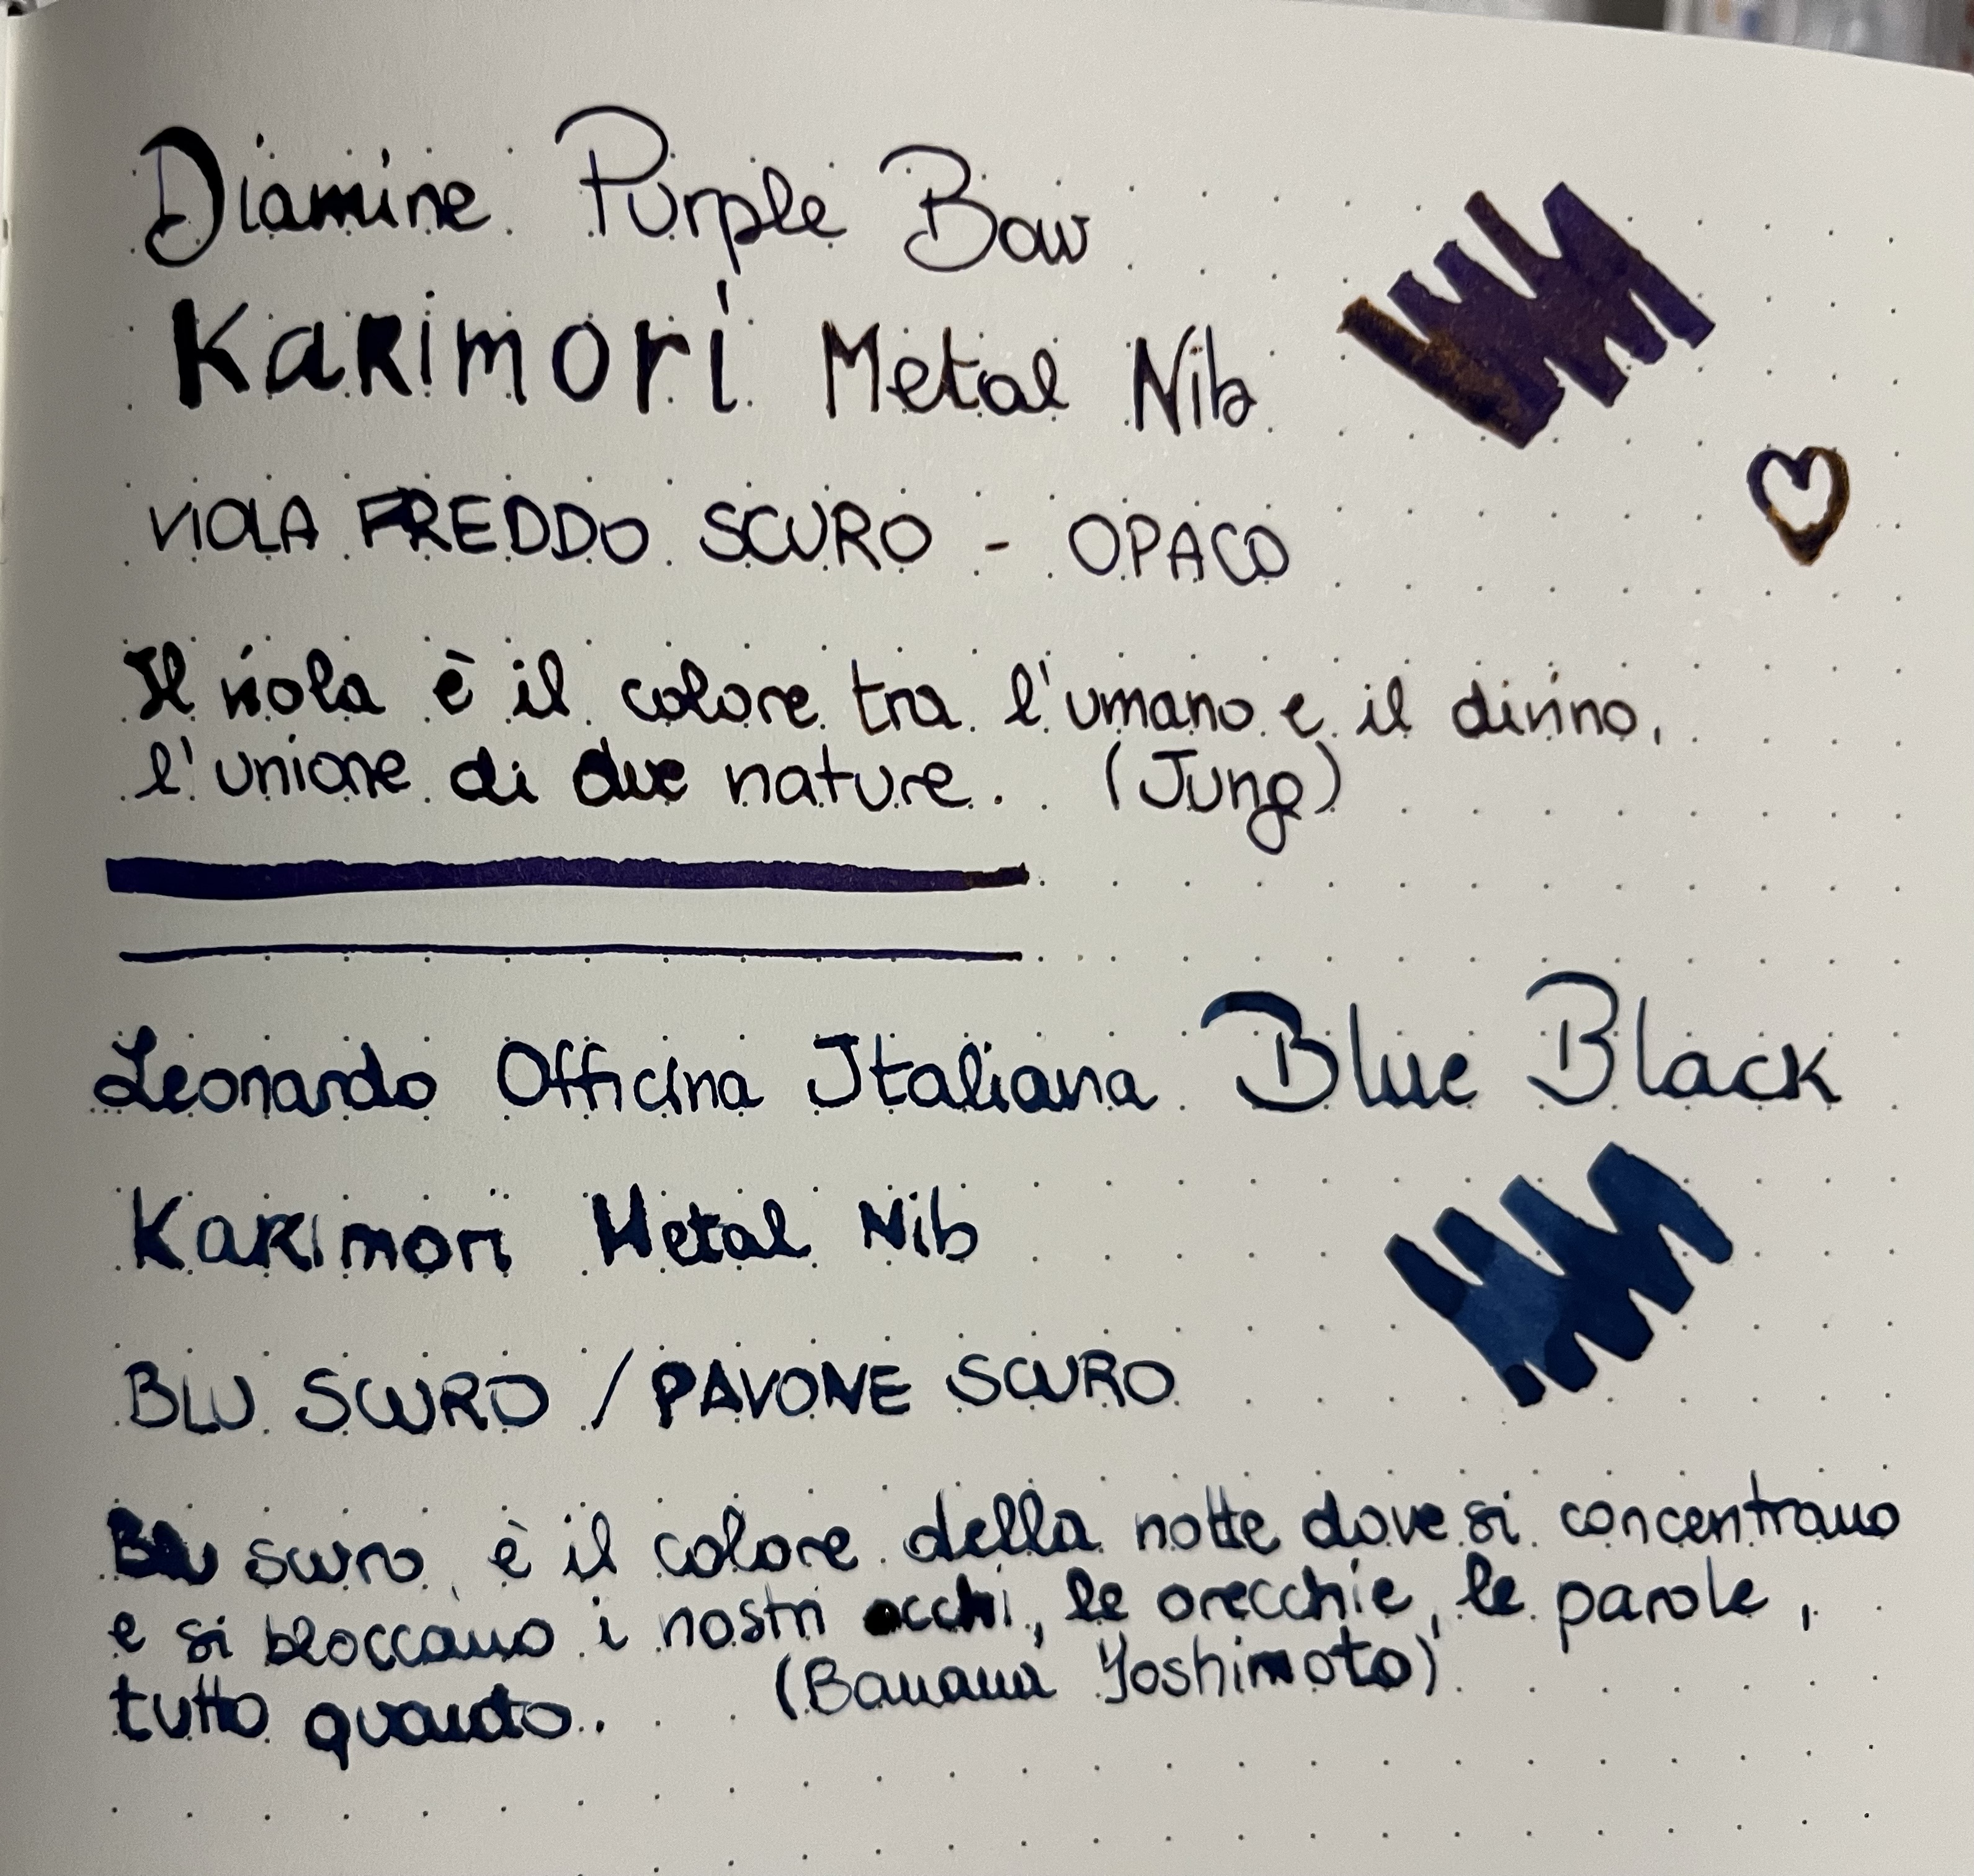 Diamine Purple Bow
Kakimori Metal Nib
VIOLA FREDDO SCURO - OPACO
Il viola è il colore tra l'umano e il divino,
l'unione di due nature. (Jung)
Leonardo Officina Italiana Blue Black
Kakimori Metal Nib
BLU SCURO / PAVONE SCURO
Blu scuro, è il colore della notte dove si concentrano
e si bloccano i nostri occhi, le orecchie, le parole,
tutto quanto. (Banana Yoshimoto)